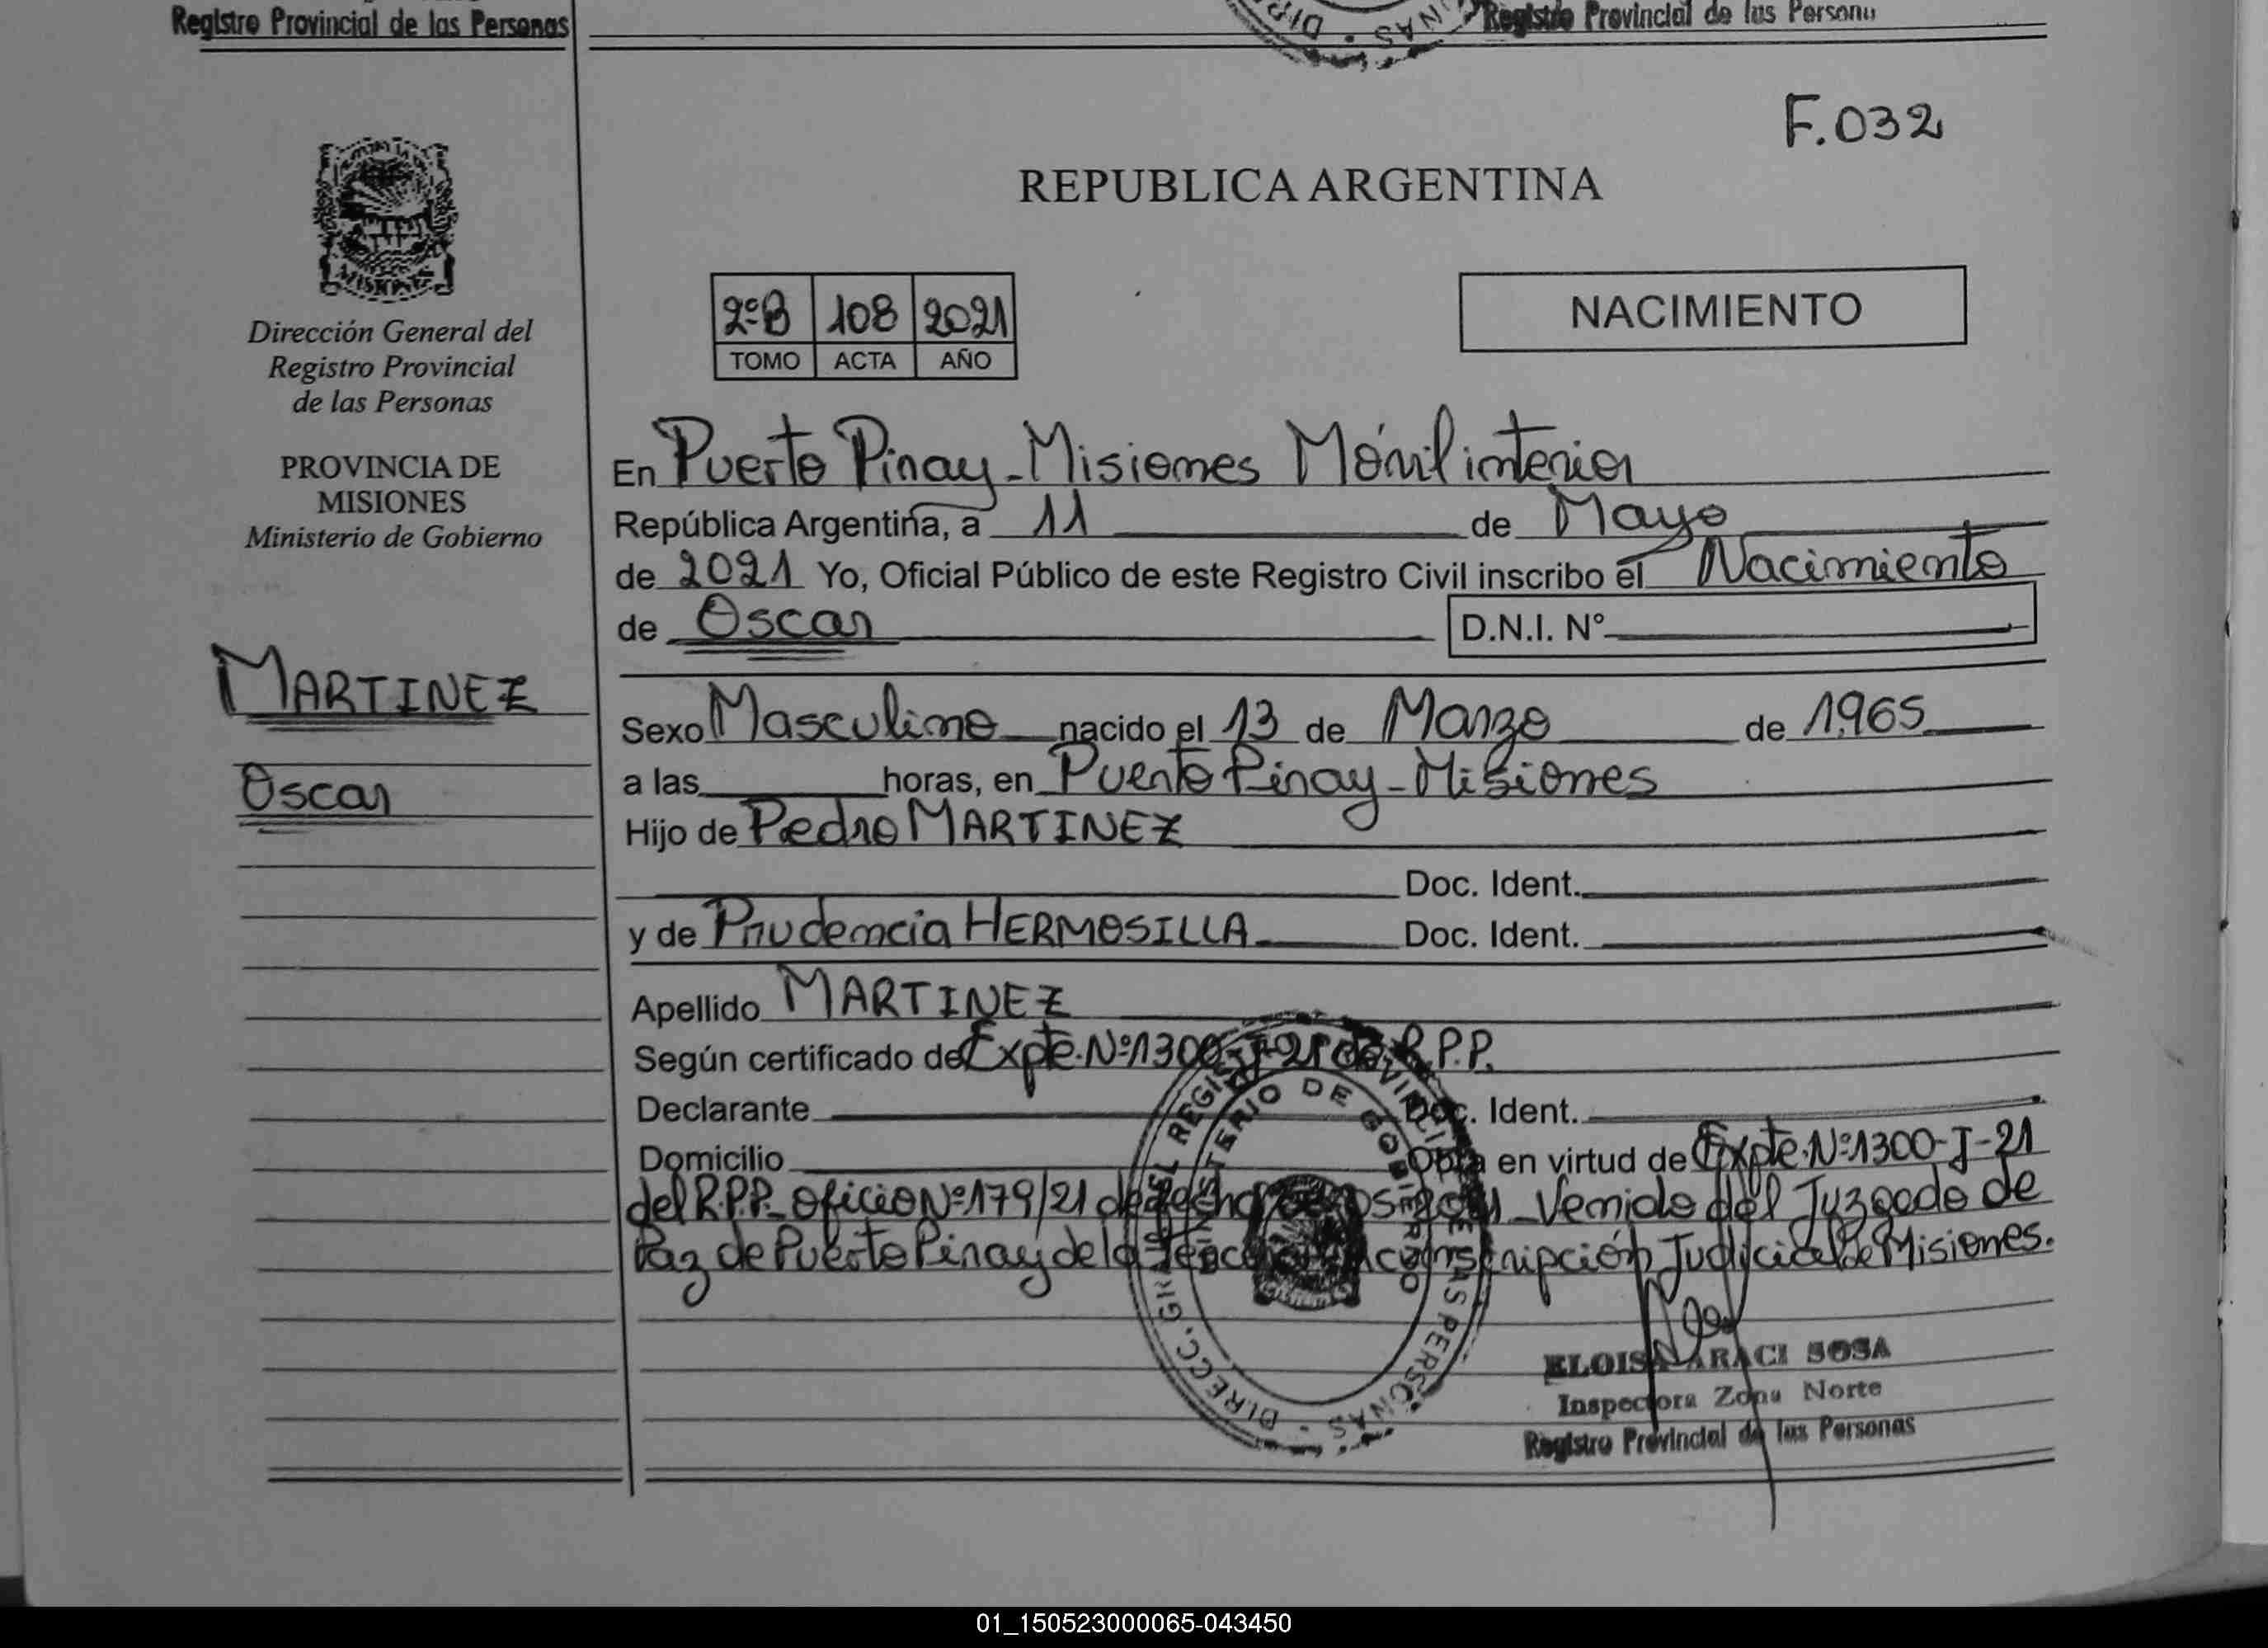 Registro Provincial de las Personas
Registro Provincial de las Person
F.032
REPUBLICA ARGENTINA
MISIONES
Dirección General del
Registro Provincial
de las Personas
PROVINCIA DE
MISIONES
Ministerio de Gobierno
2º B 108 2021
TOMO ACTA AÑO
NACIMIENTO
MARTINEZ
Oscar
En Puerto Piray - Misiones Móvil interior
República Argentina, a 11 de Mayo
de 2021 Yo, Oficial Público de este Registro Civil inscribo el Nacimiento
de Oscar D.N.I. N°
Sexo Masculino nacido el 13 de Marzo de 1.965
a las horas, en Puerto Piray - Misiones
Hijo de Pedro MARTINEZ
Doc. Ident.
y de Prudencia HERMOSILLA Doc. Ident.
Apellido MARTINEZ
Según certificado de Expte. Nº 1300-J-21 de R.P.P.
Declarante Doc. Ident.
Domicilio Obra en virtud de Expte. Nº 1300-J-21
del R.P.P. Oficio Nº 179/21 de fecha - Venido del Juzgado de
Paz de Puerto Piray de la Circunscripción Judicial de Misiones.
DIRECC. GRAL. DEL REGISTRO PROVINCIAL DE LAS PERSONAS
MINISTERIO DE GOBIERNO
ELOISA ARACI SOSA
Inspectora Zona Norte
Registro Provincial de las Personas
01_150523000065-043450